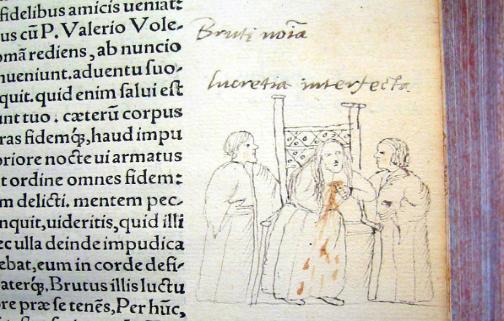 fidelibus amicis ueniat:
us cũ P. Valerio Vole-
omã rediens, ab nuncio
nueniunt. aduentu suo-
quit. quid enim salui est
nt tuo. cæterũ corpus
ras fidemq́;, haud impu
priore nocte ui armatus
t ordine omnes fidem:
m delicti. mentem pec-
nquit, uideritis, quid illi
ec ulla deinde impudica
ebat, eum in corde defi-
aterq́;. Brutus illis luctu
ore præ se tenẽs, Per hũc,
Bruti noĩa
lucretia interfecta